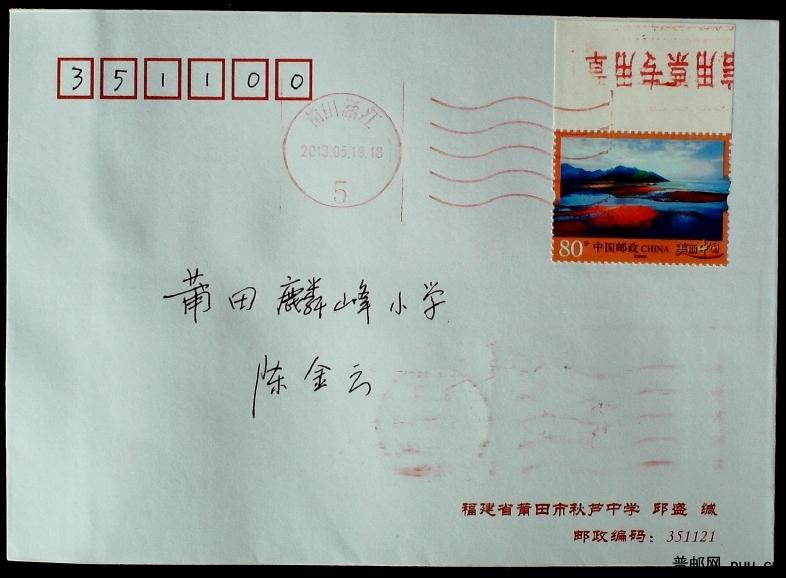 351100
信用票专用章
莆田涵江
2013.05.18.18
5
80分 中国邮政 CHINA 美丽中国
莆田麟峰小学
陈金云
福建省莆田市秋芦中学 邱盛 缄
邮政编码：351121
普邮网